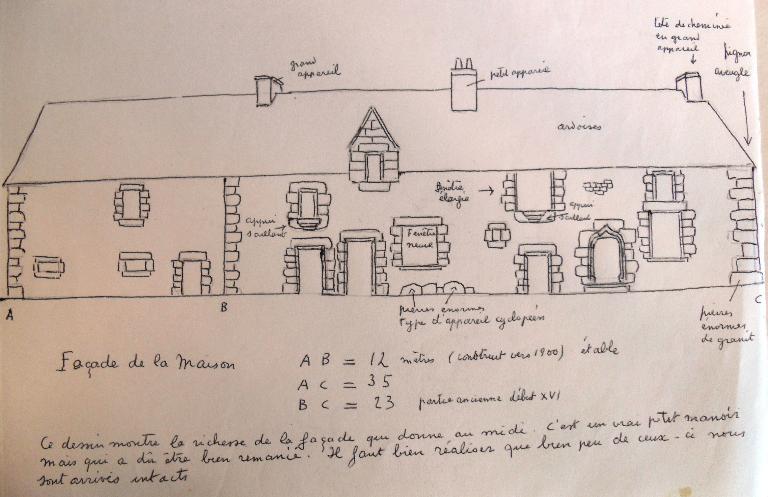 tête de cheminée
en grand
appareil
pignon
aveugle
grand
appareil
petit appareil
ardoises
fenêtre
élargie
appui
saillant
appui
saillant
Fenêtre
neuve
pierres enormes
type d'appareil cyclopéen
pierres
enormes
de granit
A
B
C
Façade de la Maison
A B = 12 mètres (construit vers 1900) étable
A C = 35
B C = 23 partie ancienne début XVI
Ce dessin montre la richesse de la façade qui donne au midi. C'est un vrai p'tit manoir
mais qui a dû être bien remanié. Il faut bien réaliser que bien peu de ceux-ci nous
sont arrivés intacts